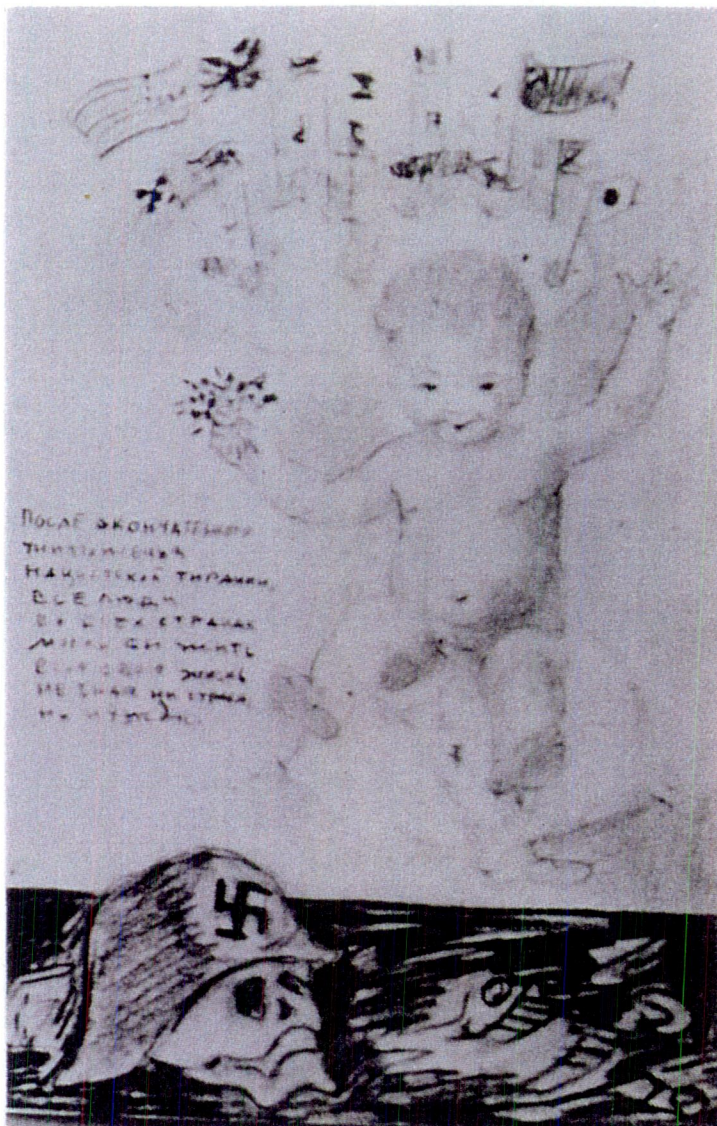 ПОСЛЕ ОКОНЧАТЕЛЬНОГО
НАЦИСТСКОЙ ТИРАНИИ,
ВСЕ ЛЮДИ
ВО ВСЕХ СТРАНАХ
МОГЛИ БИ ЖИТЬ
ВСЮ СВОЮ ЖИЗНЬ
НЕ ЗНАЯ НИ СТРАХА
НИ НУЖДЫ.